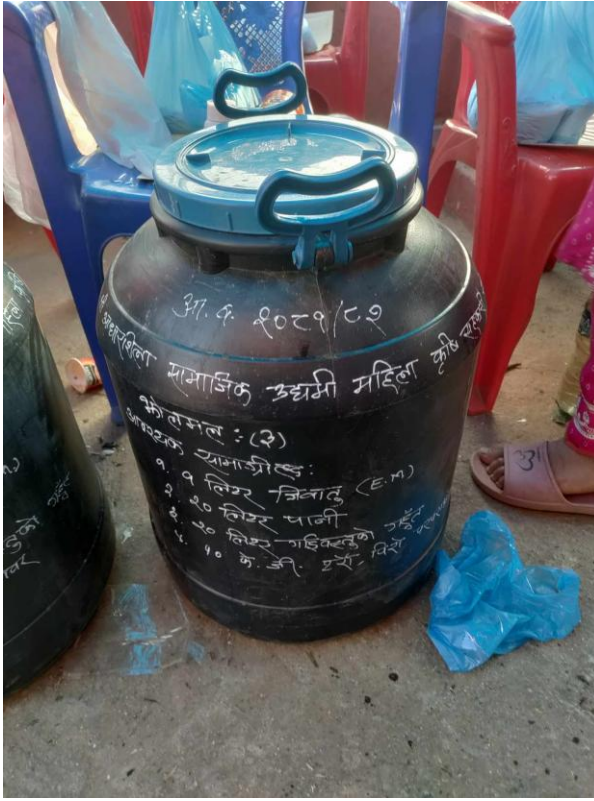 आ.व. २०८१/८२
श्री आधारशिला सामाजिक उद्यमी महिला कृषि सहकारी
झोलमल : (३)
आवश्यक सामाग्रीहरु :
१. १ लिटर जिवातु (E.M)
२. २० लिटर पानी
३. २० लिटर गाईवस्तुको गहुँत
४. १० के.जी. टर्रो, पिरो